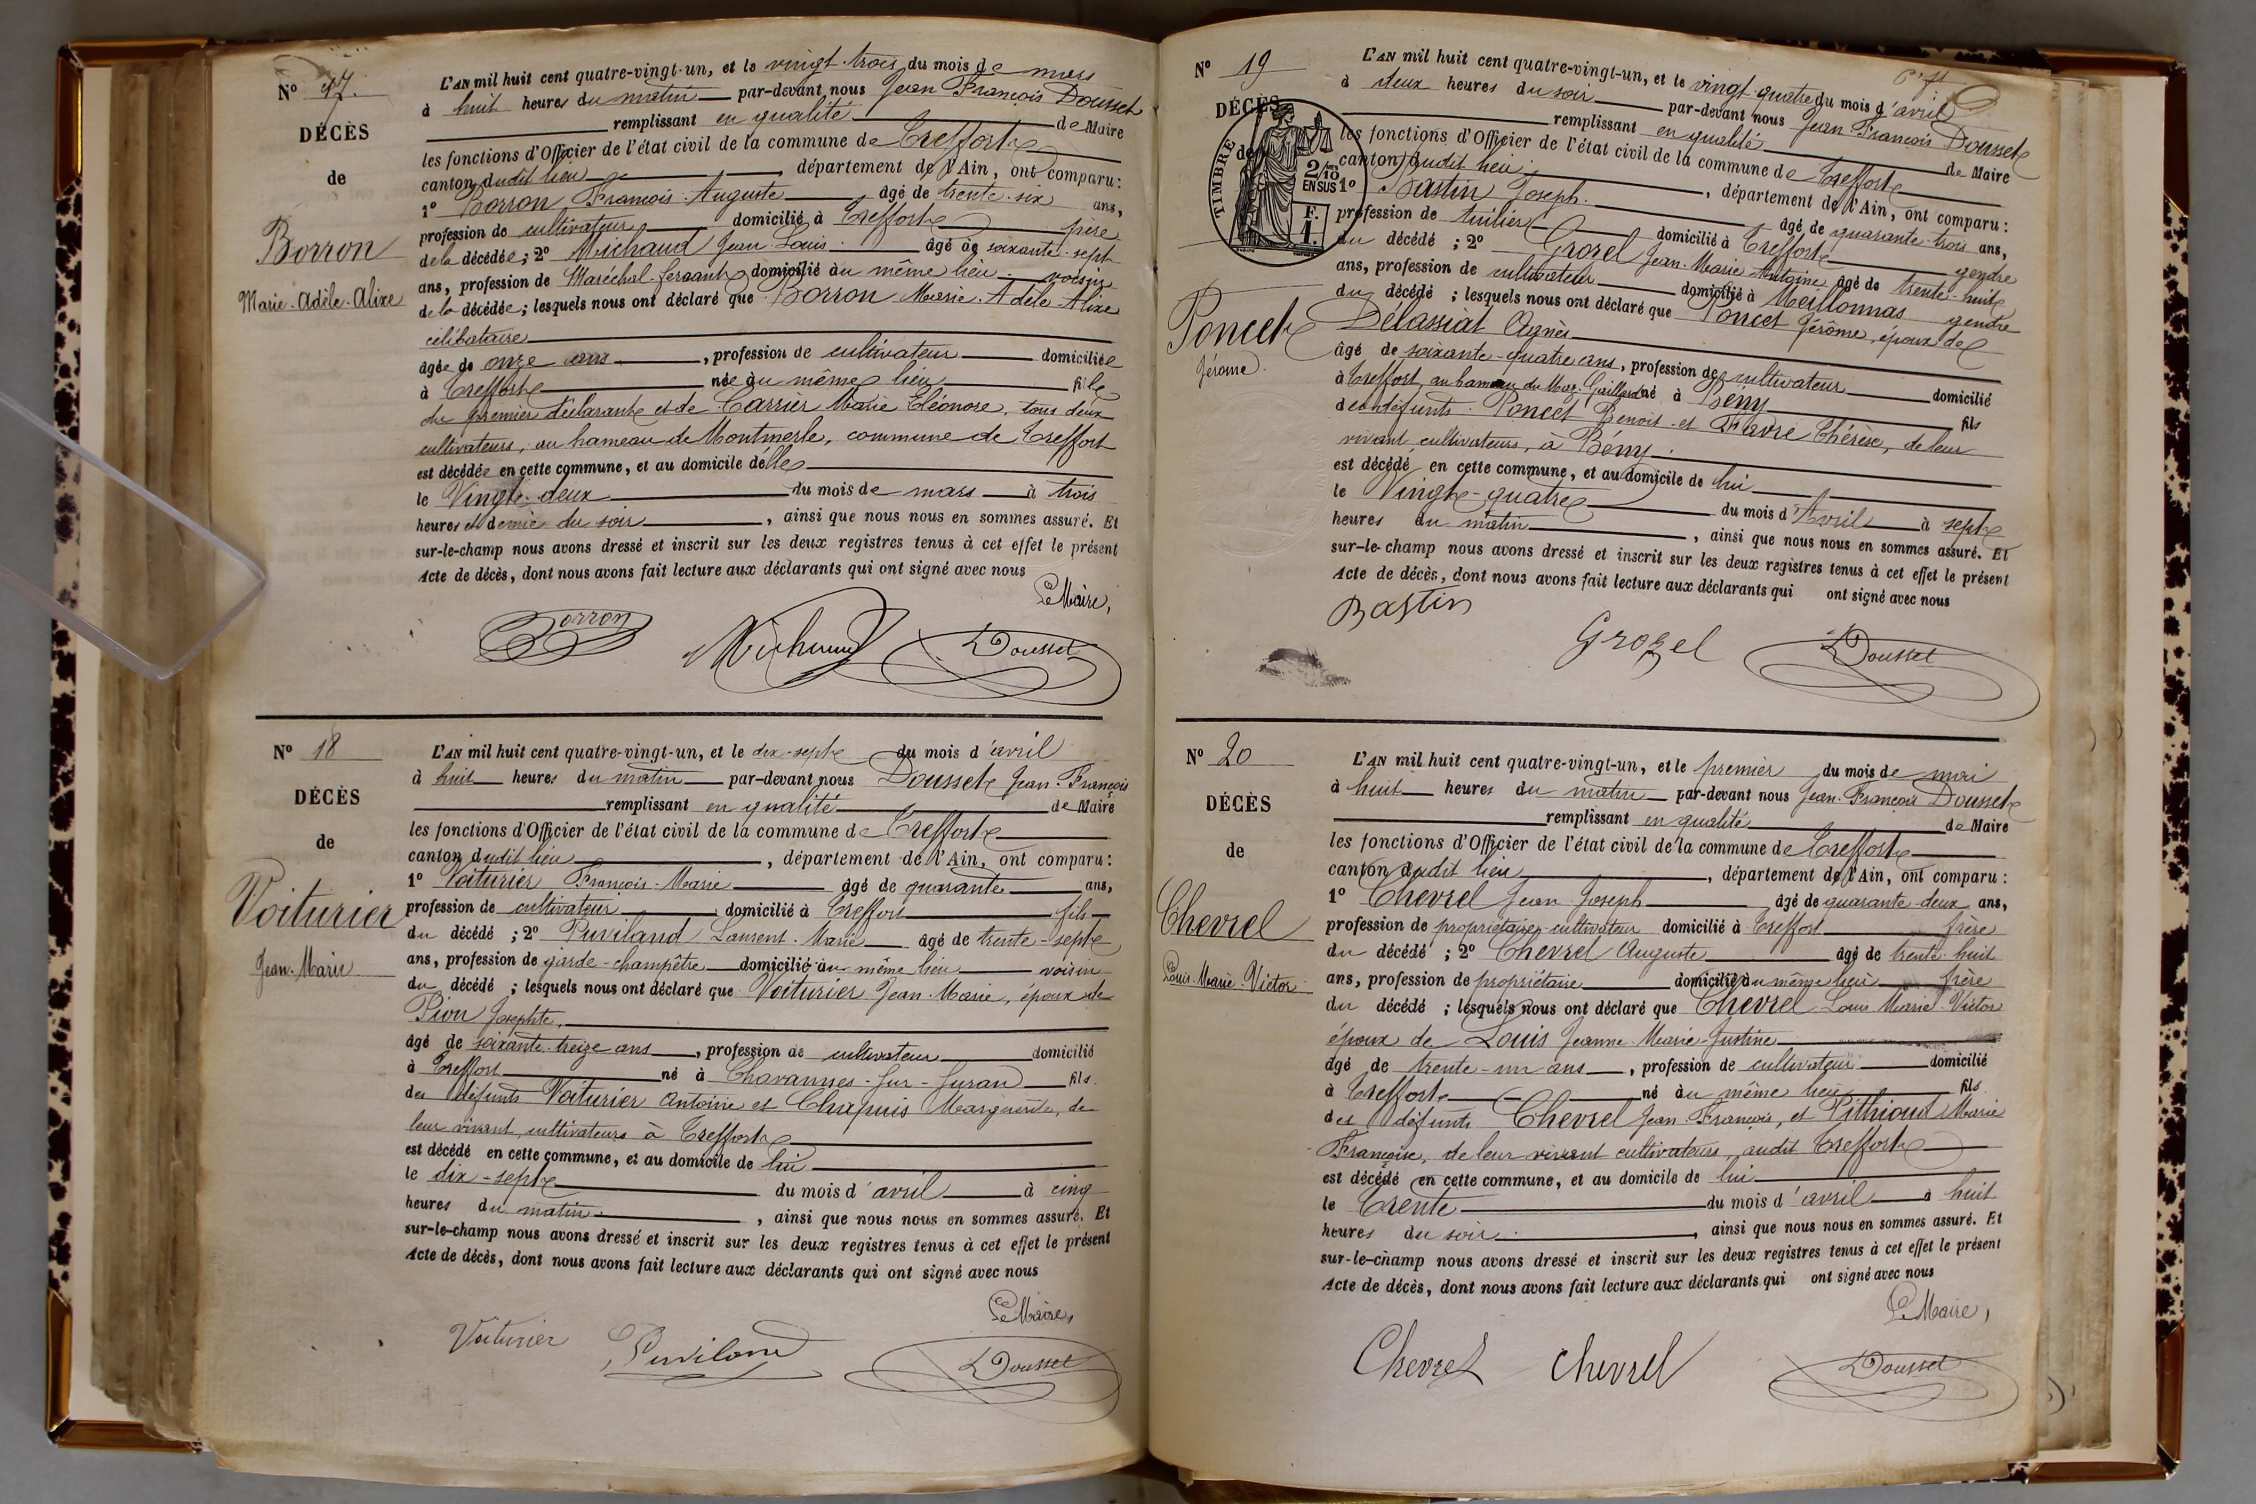 N° 17.
DÉCÈS
de
Borron
Marie-Adèle-Alixe
L'AN mil huit cent quatre-vingt-un, et le vingt-trois du mois de mars
à huit heures du matin par-devant nous Jean François Dousset
remplissant en qualité de Maire
les fonctions d'Officier de l'état civil de la commune de Treffort
canton dudit lieu, département de l'Ain, ont comparu:
1° Borron François-Auguste âgé de trente-six ans,
profession de cultivateur domicilié à Treffort père
de la décédée; 2° Michaud Jean-Louis âgé de soixante-sept
ans, profession de Maréchal-ferrant domicilié au même lieu voisin
de la décédée; lesquels nous ont déclaré que Borron Marie-Adèle-Alixe
célibataire
âgée de onze ans, profession de cultivateur domiciliée
à Treffort née au même lieu fille
du premier déclarant et de Carrier Marie Eléonore, tous deux
cultivateurs, au hameau de Montmerle, commune de Treffort
est décédée en cette commune, et au domicile d'elle
le Vingt-deux du mois de mars à trois
heures et demie du soir, ainsi que nous nous en sommes assuré. Et
sur-le-champ nous avons dressé et inscrit sur les deux registres tenus à cet effet le présent
Acte de décès, dont nous avons fait lecture aux déclarants qui ont signé avec nous
Le Maire,
Borron Michaud Dousset
N° 18
DÉCÈS
de
Voiturier
Jean-Marie
L'AN mil huit cent quatre-vingt-un, et le dix-sept du mois d'avril
à huit heures du matin par-devant nous Dousset Jean-François
remplissant en qualité de Maire
les fonctions d'Officier de l'état civil de la commune de Treffort
canton dudit lieu, département de l'Ain, ont comparu:
1° Voiturier François-Marie âgé de quarante ans,
profession de cultivateur domicilié à Treffort fils
du décédé; 2° Puviland Laurent-Marie âgé de trente-sept
ans, profession de garde-champêtre domicilié au même lieu voisin
du décédé; lesquels nous ont déclaré que Voiturier Jean-Marie, époux de
Pion Josephte,
âgé de soixante-treize ans, profession de cultivateur domicilié
à Treffort né à Chavannes-sur-Suran fils
des défunts Voiturier Antoine et Chapuis Marguerite, de
leur vivant, cultivateurs à Treffort
est décédé en cette commune, et au domicile de lui
le dix-sept du mois d'avril à cinq
heures du matin, ainsi que nous nous en sommes assuré. Et
sur-le-champ nous avons dressé et inscrit sur les deux registres tenus à cet effet le présent
Acte de décès, dont nous avons fait lecture aux déclarants qui ont signé avec nous
Le Maire,
Voiturier Puviland Dousset
N° 19
DÉCÈS
de
TIMBRE
2/10
EN SUS
F.
1.
Poncet
Jérôme.
L'AN mil huit cent quatre-vingt-un, et le vingt-quatre du mois d'avril
à deux heures du soir par-devant nous Jean-François Dousset
remplissant en qualité de Maire
les fonctions d'Officier de l'état civil de la commune de Treffort
canton dudit lieu, département de l'Ain, ont comparu:
1° Bastin Joseph âgé de quarante-trois ans,
profession de tuilier domicilié à Treffort gendre
du décédé; 2° Grozel Jean-Marie Antoine âgé de trente-huit
ans, profession de cultivateur domicilié à Meillonnas gendre
du décédé; lesquels nous ont déclaré que Poncet Jérôme, époux de
Delassiat Agnès
âgé de soixante-quatre ans, profession de cultivateur domicilié
à Treffort, au hameau du Mas-Gaillard né à Bény fils
de défunts Poncet Benoit et Favre Thérèse, de leur
vivant cultivateurs, à Bény.
est décédé en cette commune, et au domicile de lui
le Vingt-quatre du mois d'Avril à sept
heures du matin, ainsi que nous nous en sommes assuré. Et
sur-le-champ nous avons dressé et inscrit sur les deux registres tenus à cet effet le présent
Acte de décès, dont nous avons fait lecture aux déclarants qui ont signé avec nous
Bastin Grozel Dousset
N° 20
DÉCÈS
de
Chevrel
Louis-Marie-Victor
L'AN mil huit cent quatre-vingt-un, et le premier du mois de mai
à huit heures du matin par-devant nous Jean-François Dousset
remplissant en qualité de Maire
les fonctions d'Officier de l'état civil de la commune de Treffort
canton dudit lieu, département de l'Ain, ont comparu:
1° Chevrel Jean Joseph âgé de quarante-deux ans,
profession de propriétaire-cultivateur domicilié à Treffort frère
du décédé; 2° Chevrel Auguste âgé de trente-huit
ans, profession de propriétaire domicilié au même lieu frère
du décédé; lesquels nous ont déclaré que Chevrel Louis Marie-Victor
époux de Louis Jeanne Marie-Justine
âgé de trente-un ans, profession de cultivateur domicilié
à Treffort né au même lieu fils
des défunts Chevrel Jean-François, et Pithioud Marie
Françoise, de leur vivant cultivateurs, audit Treffort
est décédé en cette commune, et au domicile de lui
le Trente du mois d'avril à huit
heures du soir, ainsi que nous nous en sommes assuré. Et
sur-le-champ nous avons dressé et inscrit sur les deux registres tenus à cet effet le présent
Acte de décès, dont nous avons fait lecture aux déclarants qui ont signé avec nous
Le Maire,
Chevrel Chevrel Dousset